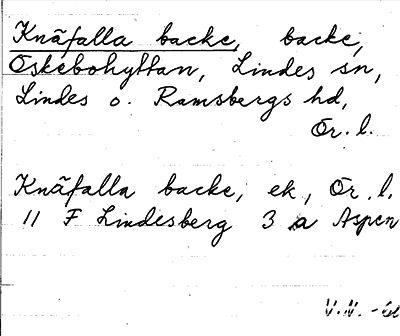 Knäfalla backe, backe,
Öskebohyttan, Lindes sn,
Lindes o. Ramsbergs hd,
Ör. l.
Knäfalla backe, ek, Ör. l.
11 F Lindesberg 3 a Aspen
V.N. -61